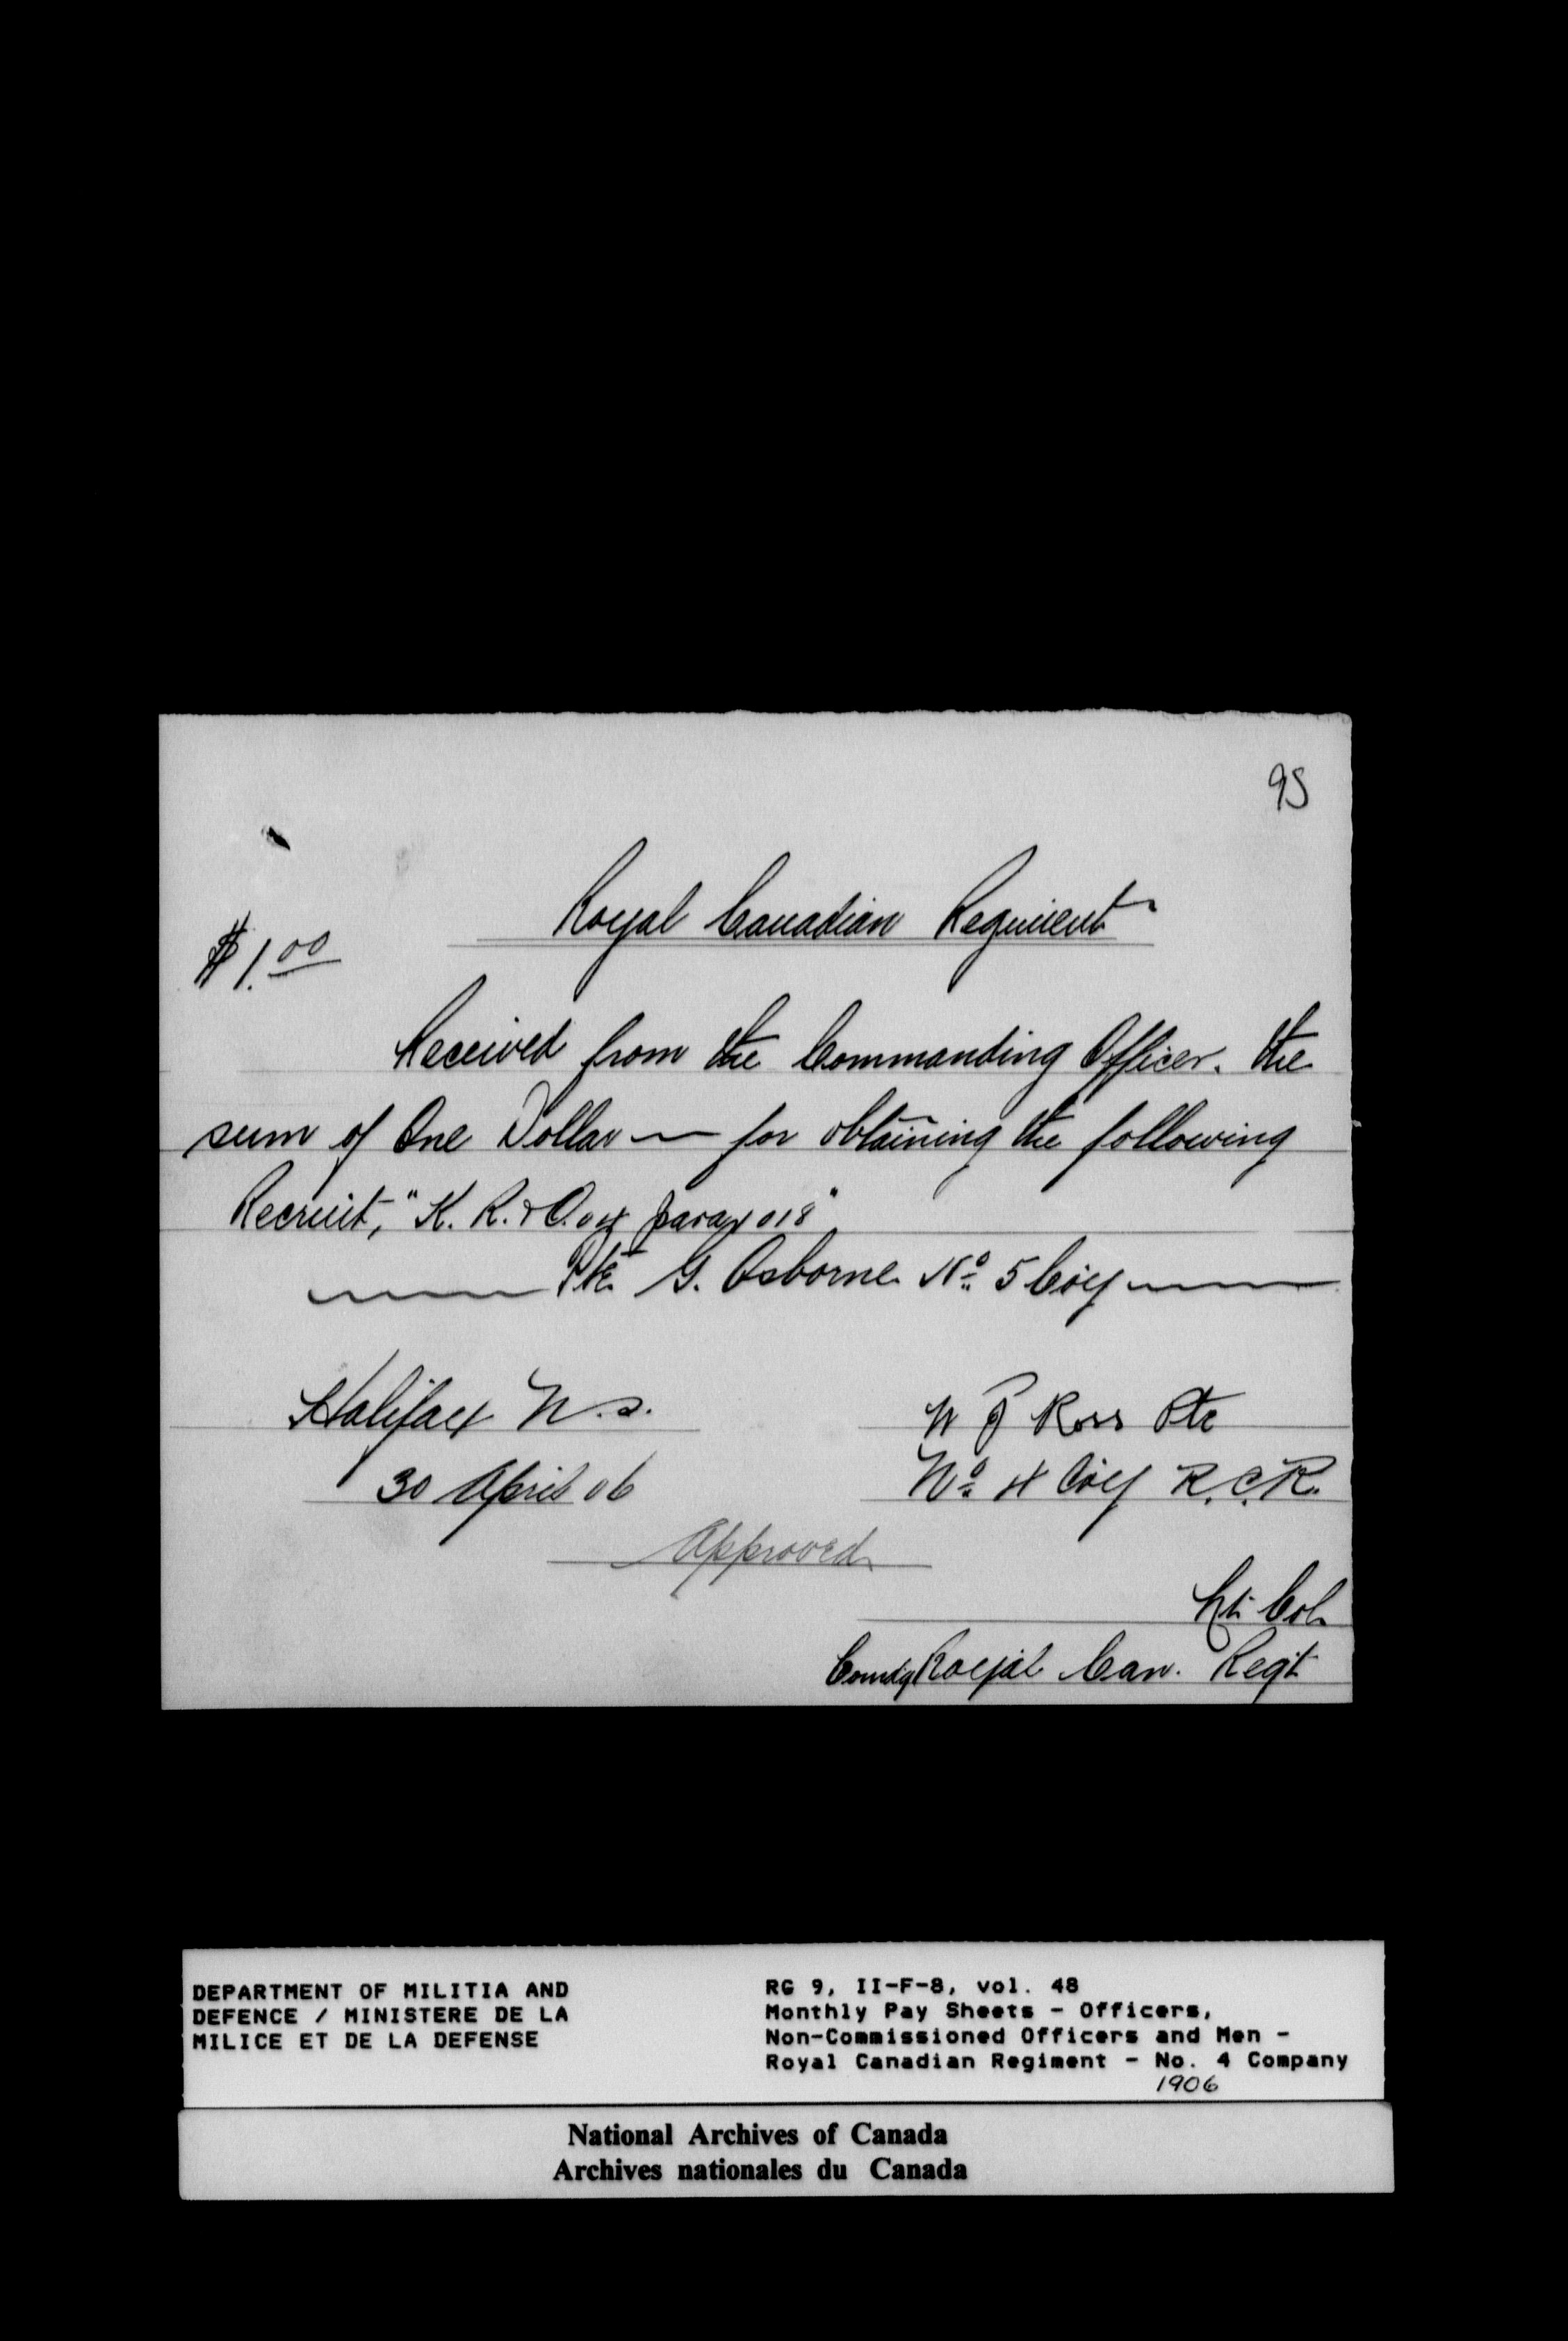 95
Royal Canadian Regiment
$1.00
Received from the Commanding Officer. the
sum of One Dollar — for obtaining the following
Recruit, "K. R. & O. para 1018"
Pte G. Osborne No 5 Coy
Halifax N.S.
W J Ross Pte
30 April 06
No 4 Coy R.C.R.
Approved
Lt. Col.
Comdg Royal Can. Regt
DEPARTMENT OF MILITIA AND
DEFENCE / MINISTERE DE LA
MILICE ET DE LA DEFENSE
RG 9, II-F-8, vol. 48
Monthly Pay Sheets - Officers,
Non-Commissioned Officers and Men -
Royal Canadian Regiment - No. 4 Company
1906
National Archives of Canada
Archives nationales du Canada